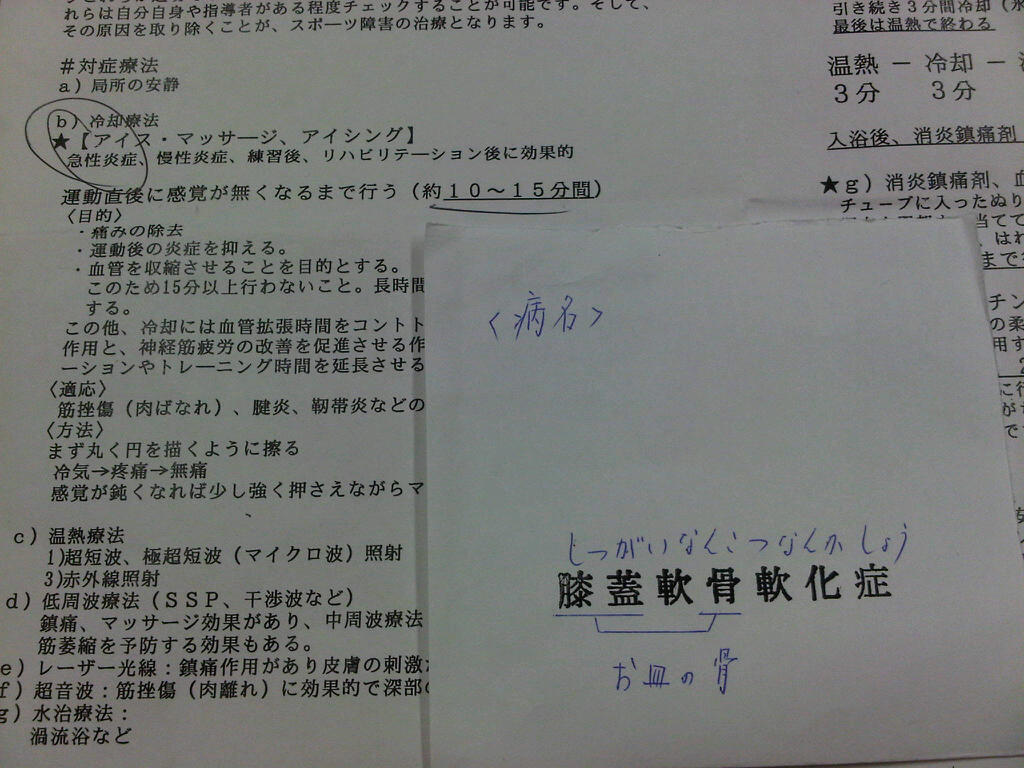 れらは自分自身や指導者がある程度チェックすることが可能です。そして、
その原因を取り除くことが、スポーツ障害の治療となります。
＃対症療法
a）局所の安静
b）冷却療法
★【アイス・マッサージ、アイシング】
急性炎症、慢性炎症、練習後、リハビリテーション後に効果的
運動直後に感覚が無くなるまで行う（約１０～１５分間）
〈目的〉
・痛みの除去
・運動後の炎症を抑える。
・血管を収縮させることを目的とする。
このため15分以上行わないこと。長時間
する。
この他、冷却には血管拡張時間をコントト
作用と、神経筋疲労の改善を促進させる作
ーションやトレーニング時間を延長させる
〈適応〉
筋挫傷（肉ばなれ）、腱炎、靭帯炎などの
〈方法〉
まず丸く円を描くように擦る
冷気→疼痛→無痛
感覚が鈍くなれば少し強く押さえながらマ
c）温熱療法
1)超短波、極超短波（マイクロ波）照射
3)赤外線照射
d）低周波療法（ＳＳＰ、干渉波など）
鎮痛、マッサージ効果があり、中周波療法
筋萎縮を予防する効果もある。
e）レーザー光線：鎮痛作用があり皮膚の刺激
f）超音波：筋挫傷（肉離れ）に効果的で深部
g）水治療法：
渦流浴など
引き続き３分間冷却（氷
最後は温熱で終わる
温熱 － 冷却 －
３分　３分
入浴後、消炎鎮痛剤
★g）消炎鎮痛剤、血
チューブに入ったぬり
当てて
、はれ
まで
チン
の柔
用す
に行
が
で
〈病名〉
しつがいなんこつなんかしょう
膝蓋軟骨軟化症
お皿の骨